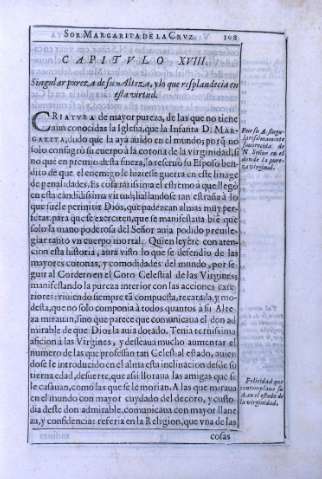 SOR MARGARITA DE LA CRVZ. 108
CAPITVLO XVIII.
Singular pureza de su Alteza, y lo que resplandecia en
esta virtud.
CRIATVRA de mayor pureza, de las que no tiene
aun conocidas la Iglesia, que la Infanta D. MAR-
GARITA, dudo que la aya auido en el mundo; porq̃ no
solo consagrò su cuerpo à la corona de la virginidad, si
no que en premio desta fineza, la reseruò su Esposo bendito
de que el enemigo le hiziesse guerra en este linage
de penalidades. Es cosa rarissima el estremo à que llegò
en esta candidissima virtud, hallandose tan estraña à lo
que suele permitir Dios, que padezcan almas muy perfetas,
para que se exerciten, que se manifestaua bien que
solo la mano poderosa del Señor auia podido preuilegiar
tanto vn cuerpo mortal. Quien leyere con atencion
esta historia, aurà visto lo que se defendiò de las
mayores coronas, y comodidades del mundo, por seguir
al Cordero en el Coro Celestial de las Virgines;
manifestando la pureza interior con las acciones exteriores:
viuiendo siempre tã compuesta, recatada, y modesta,
que no solo componia à todos quantos a su Alteza
mirauan, sino que parece que comunicaua el don admirable
de que Dios la auia dotado. Tenia ternissima
aficion à las Virgines, y desseaua mucho aumentar el
numero de las que professan tan Celestial estado, auiendosele
introducido en el alma esta inclinacion desde su
tierna edad, de suerte, que assi lloraua las amigas que se
le casauan, como las que se le morian. A las que miraua
en el mundo con mayor cuydado del decoro, y custodia
deste don admirable, comunicaua con mayor llaneza,
y confidencias referia en la Religion, que vna de las
cosas
Fue su A. singularissimamente
fauorecida de
N. Señor en el
don de la pureza
virginal.
Felicidad que
contemplaua su
A. en el estado de
la virginidad.